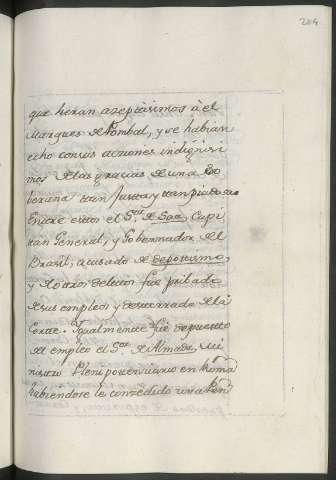 204
que heran azeptisimos à el
Marques de Pombal, y se habian
echo con sus acciones indignisi
mos de las gracias de una So
berana tan Justa y tan piadosa
Entre estos el S.or de Saa, Capi
tan General, y Gobernador del
Brasil, acusado de depotismo,
y de otros delitos fue pribado
de sus empleos y desterrado de la
Corte. Igualmente fue depuesto
del empleo el S.or de Almada, Mi
nistro Plenipotenciario en Roma
habiendose le concedido una Pen